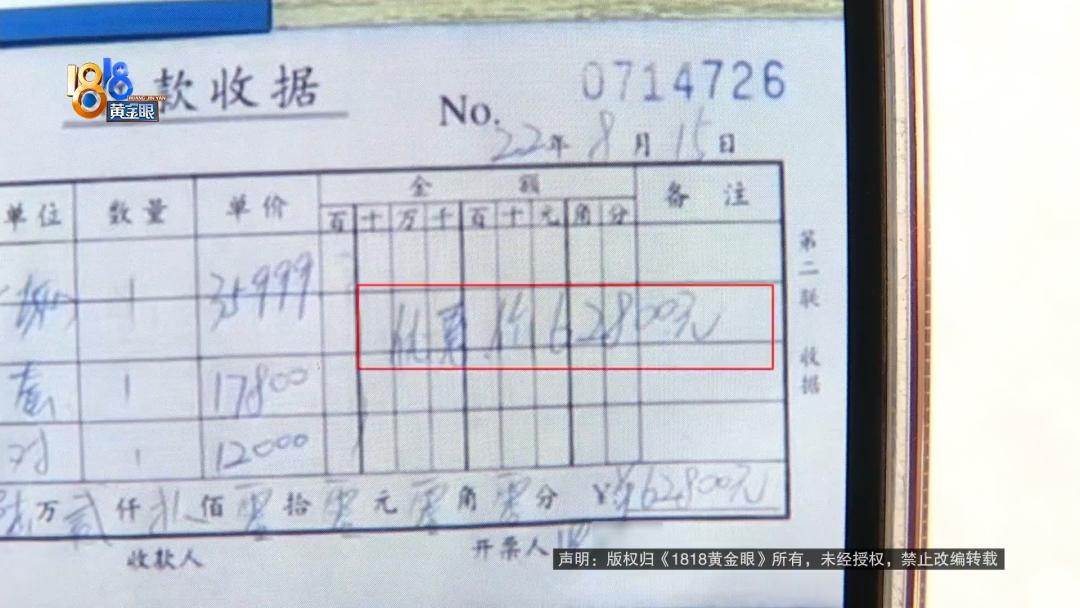 1818
HUANG JIN YAN
黄金眼
款收据
No. 0714726
22年8月15日
单位 数量 单价 金额 备注
百 十 万 千 百 十 元 角 分
1 35999
优惠价62800元
套 1 17800
对 1 12000
陆万贰仟捌佰零拾零元零角零分 ¥62800元
收款人 开票人
第二联 收据
声明:版权归《1818黄金眼》所有,未经授权,禁止改编转载